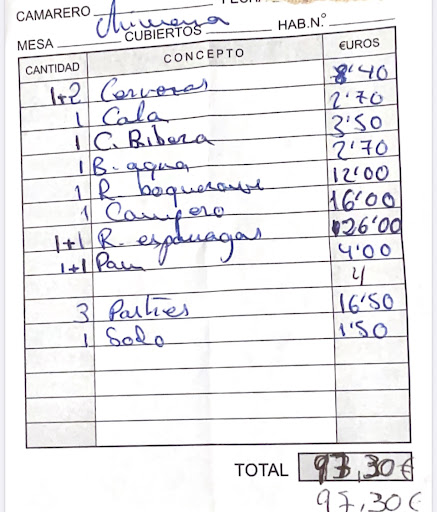 CAMARERO
MESA CUBIERTOS HAB.N.º
CANTIDAD CONCEPTO €UROS
1+2 Cervezas 8'40
1 Cala 2'70
1 C. Ribera 3'50
1 B. agua 2'70
1 R. 12'00
1 Campero 16'00
1+1 R. esparragos 26'00
1+1 Pan 4'00
3 16'50
1 Solo 1'50
TOTAL 97,30€
97,30€